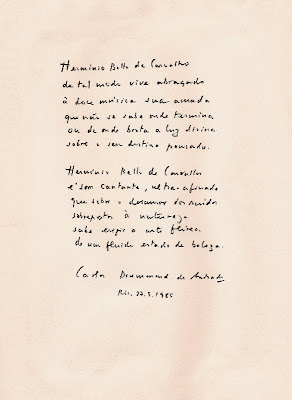 Herminio Bello de Carvalho
de tal modo vive abraçado
à doce música sua amada
que não se sabe onde termina
ou de onde brota a luz divina
sobre o seu destino pousado.
Herminio Bello de Carvalho
é som cantante, ultra-afinado
que sobre o desamor dos ruídos
sobrepostos à natureza
sabe erigir a arte
de um fluido estado de beleza.
Carlos Drummond de Andrade
Rio, 22.5.1985